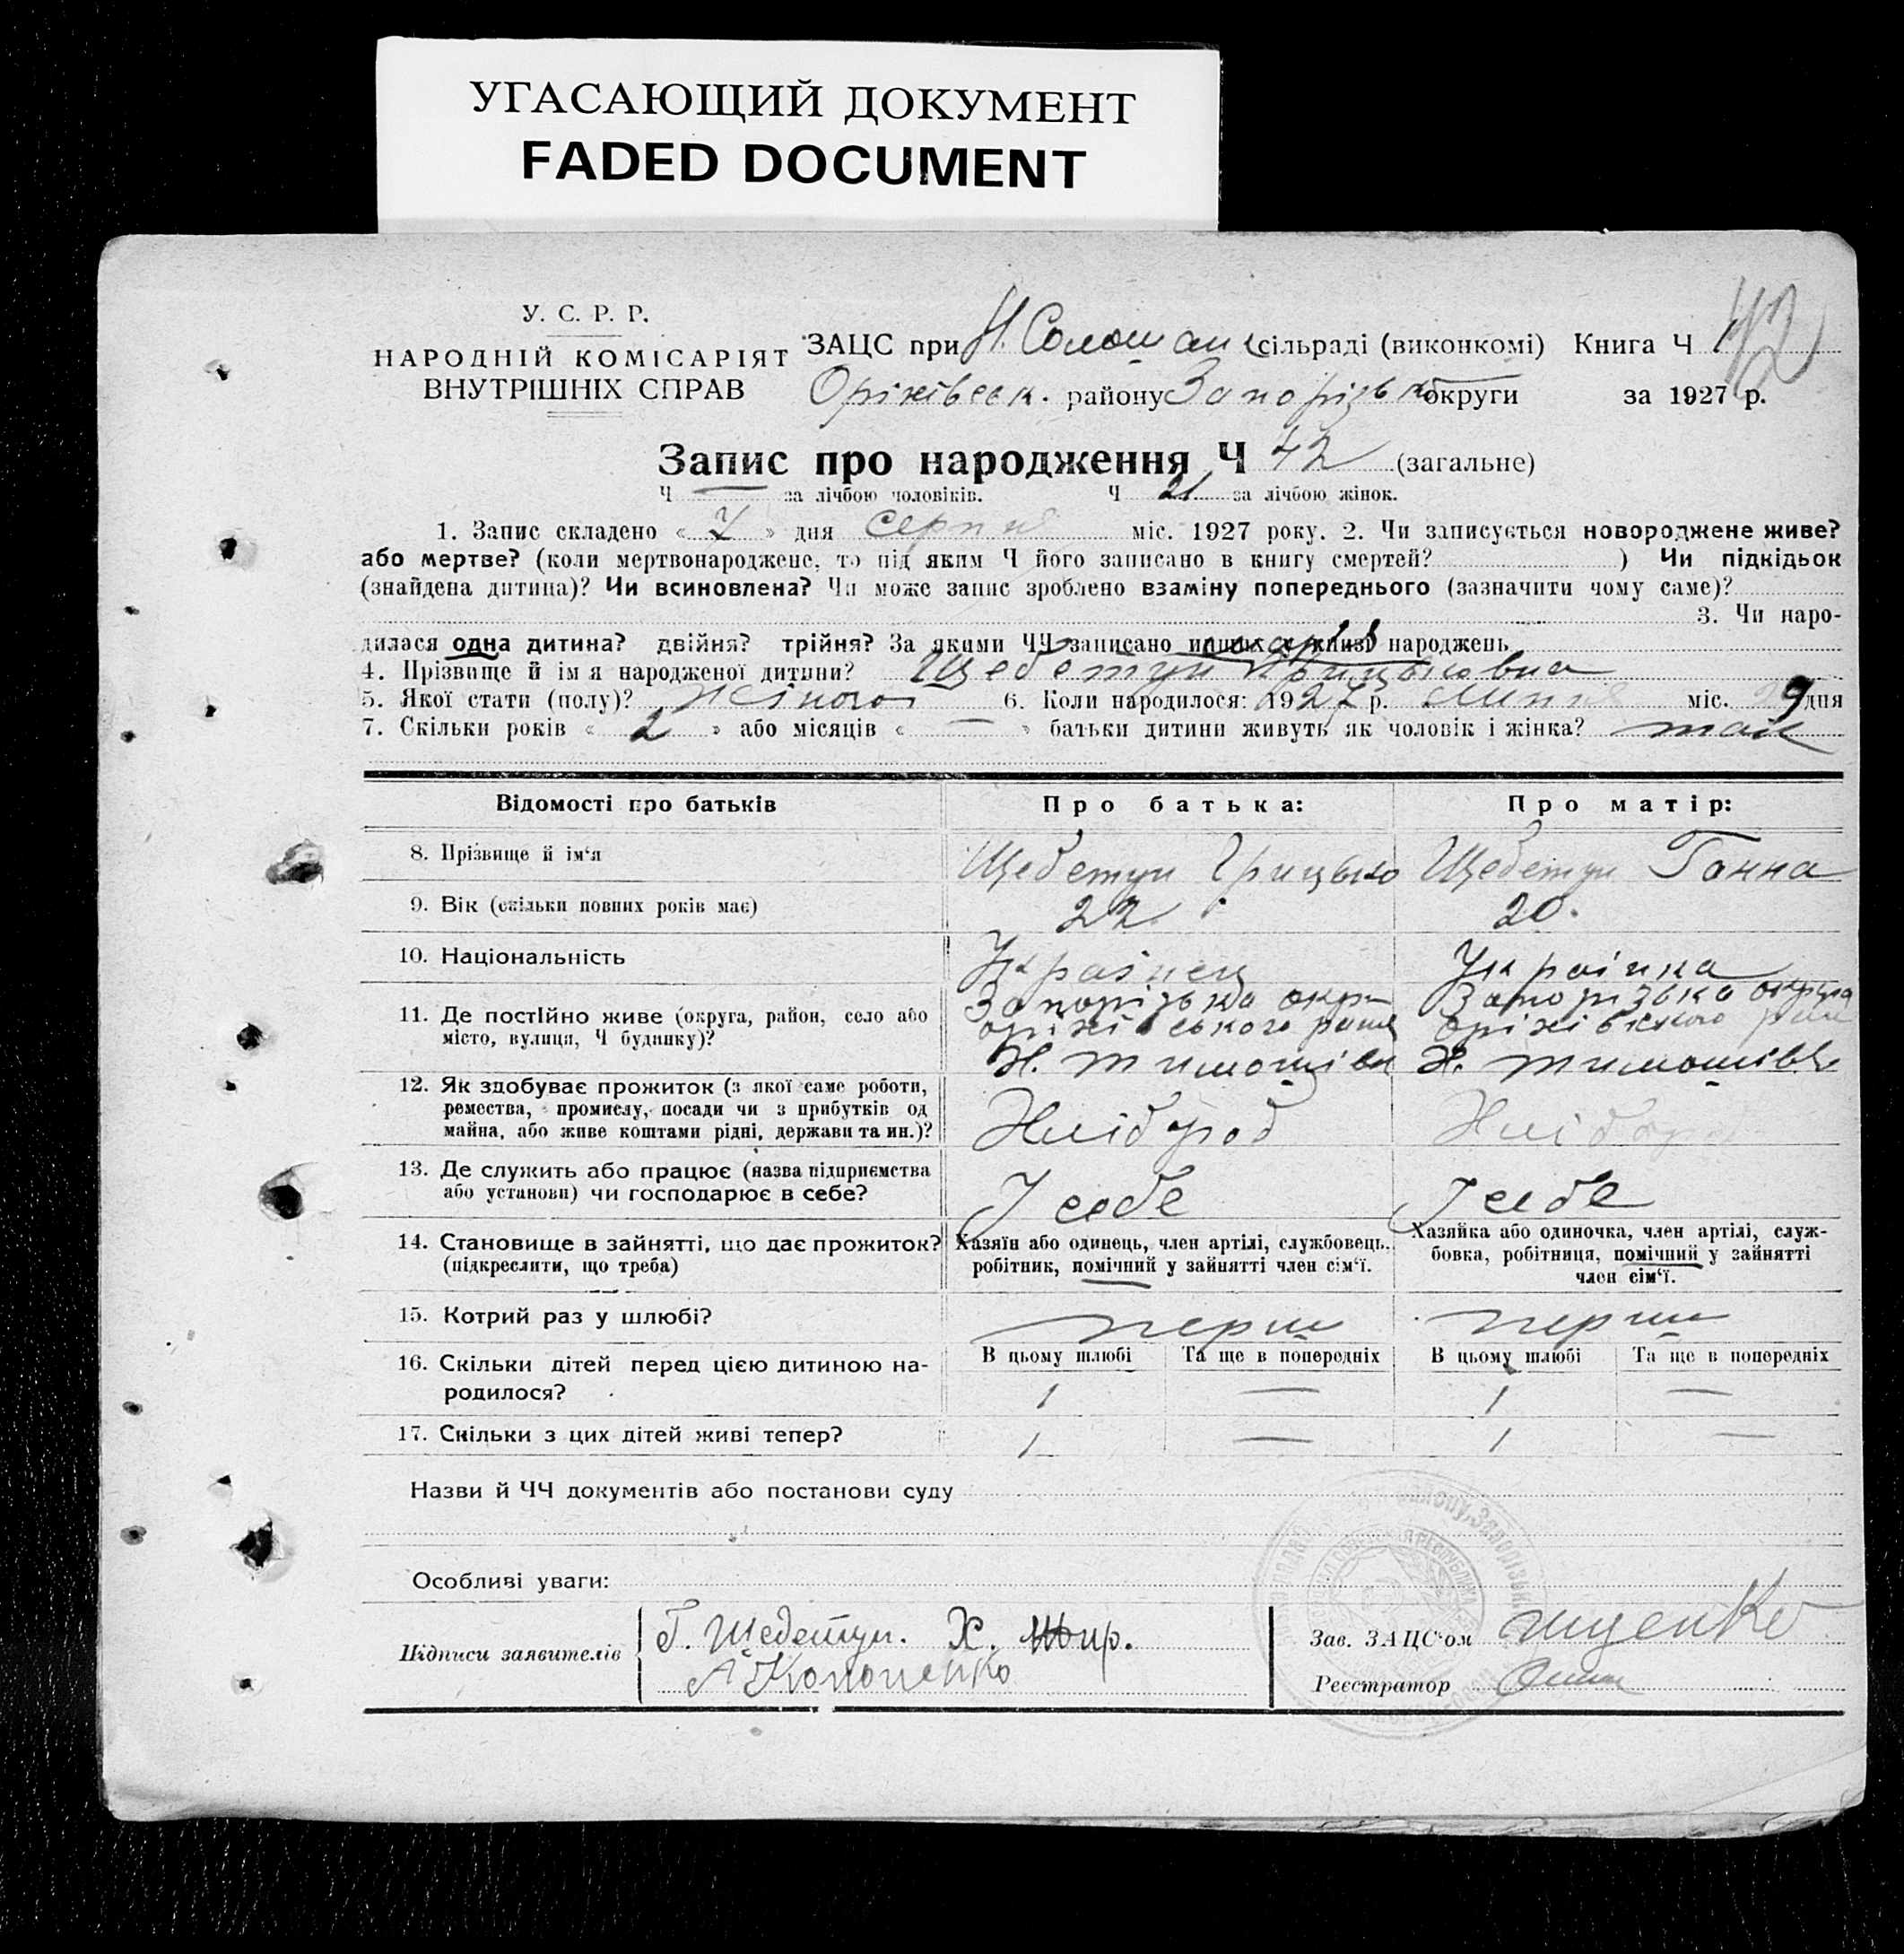 УГАСАЮЩИЙ ДОКУМЕНТ
FADED DOCUMENT
У. С. Р. Р.
НАРОДНІЙ КОМІСАРІЯТ
ВНУТРІШНІХ СПРАВ
ЗАЦС при сільраді (виконкомі) Книга Ч 1
42
Оріхівськ. району Запорізько округи за 1927 р.
Запис про народження Ч 42 (загальне)
Ч — за лічбою чоловіків. Ч 21 за лічбою жінок.
1. Запис складено « 7 » дня серпня міс. 1927 року. 2. Чи записується новороджене живе?
або мертве? (коли мертвонароджене, то під яким Ч його записано в книгу смертей? ) Чи підкідьок
(знайдена дитина)? Чи всиновлена? Чи може запис зроблено взаміну попереднього (зазначити чому саме)?
3. Чи наро-
дилася одна дитина? двійня? трійня? За якими ЧЧ записано инших у книзі народжень
4. Прізвище й ім я народженої дитини? Щебетун Грицьковна
5. Якої стати (полу)? жіночої 6. Коли народилося: 1927 р. липня міс. 29 дня
7. Скільки років « 2 » або місяців « — » батьки дитини живуть як чоловік і жінка? так
Відомості про батьків
Про батька:
Про матір:
8. Прізвище й ім‘я
Щебетун Грицько
Щебетун Ганна
9. Вік (скільки повних років має)
22
20.
10. Національність
Українец
Українка
11. Де постійно живе (округа, район, село або
місто, вулиця, Ч будинку)?
Запорізька окру
оріхівського рай
Н. Тимошівк
Запорізька округа
оріхівського рай
Н. Тимошівк
12. Як здобуває прожиток (з якої саме роботи,
ремества, промислу, посади чи з прибутків од
майна, або живе коштами рідні, держави та ин.)?
Хлібороб
Хлібороб
13. Де служить або працює (назва підприємства
або установи) чи господарює в себе?
У себе
У себе
14. Становище в зайнятті, що дає прожиток?
(підкреслити, що треба)
Хазяїн або одинець, член артілі, службовець,
робітник, помічний у зайнятті член сім‘ї.
Хазяйка або одиночка, член артілі, служ-
бовка, робітниця, помічний у зайнятті
член сім‘ї.
15. Котрий раз у шлюбі?
перш
перш
16. Скільки дітей перед цією дитиною на-
родилося?
В цьому шлюбі Та ще в попередніх
В цьому шлюбі Та ще в попередніх
1 —
1 —
17. Скільки з цих дітей живі тепер?
1 —
1 —
Назви й ЧЧ документів або постанови суду
Особливі уваги:
Підписи заявителів
Г. Щебетун. Х. Жир.
А Кононенко
Зав. ЗАЦС‘ом
Реєстратор